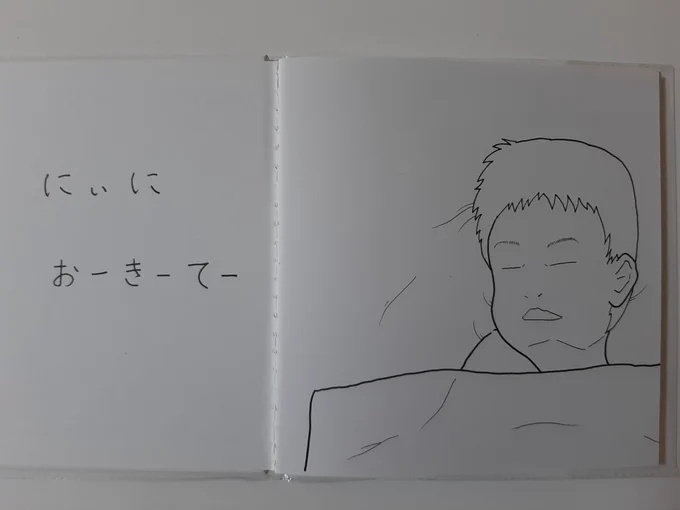 にぃに
おーきーてー